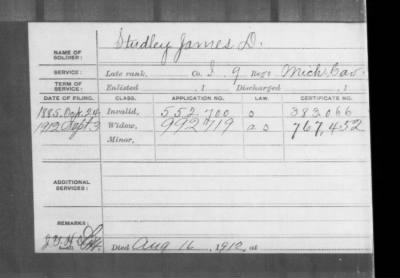 NAME OF SOLDIER: Studley James D.
SERVICE: Late rank, Co. I, 9 Reg't Mich. Cav.
TERM OF SERVICE: Enlisted , 1 Discharged , 1
DATE OF FILING. CLASS. APPLICATION NO. LAW. CERTIFICATE NO.
1885. 24 Invalid, 552.700 383.066
1912 Sept. 3 Widow, 992719 767,452
Minor,
ADDITIONAL SERVICES:
REMARKS:
Died Aug 16, 1912, at